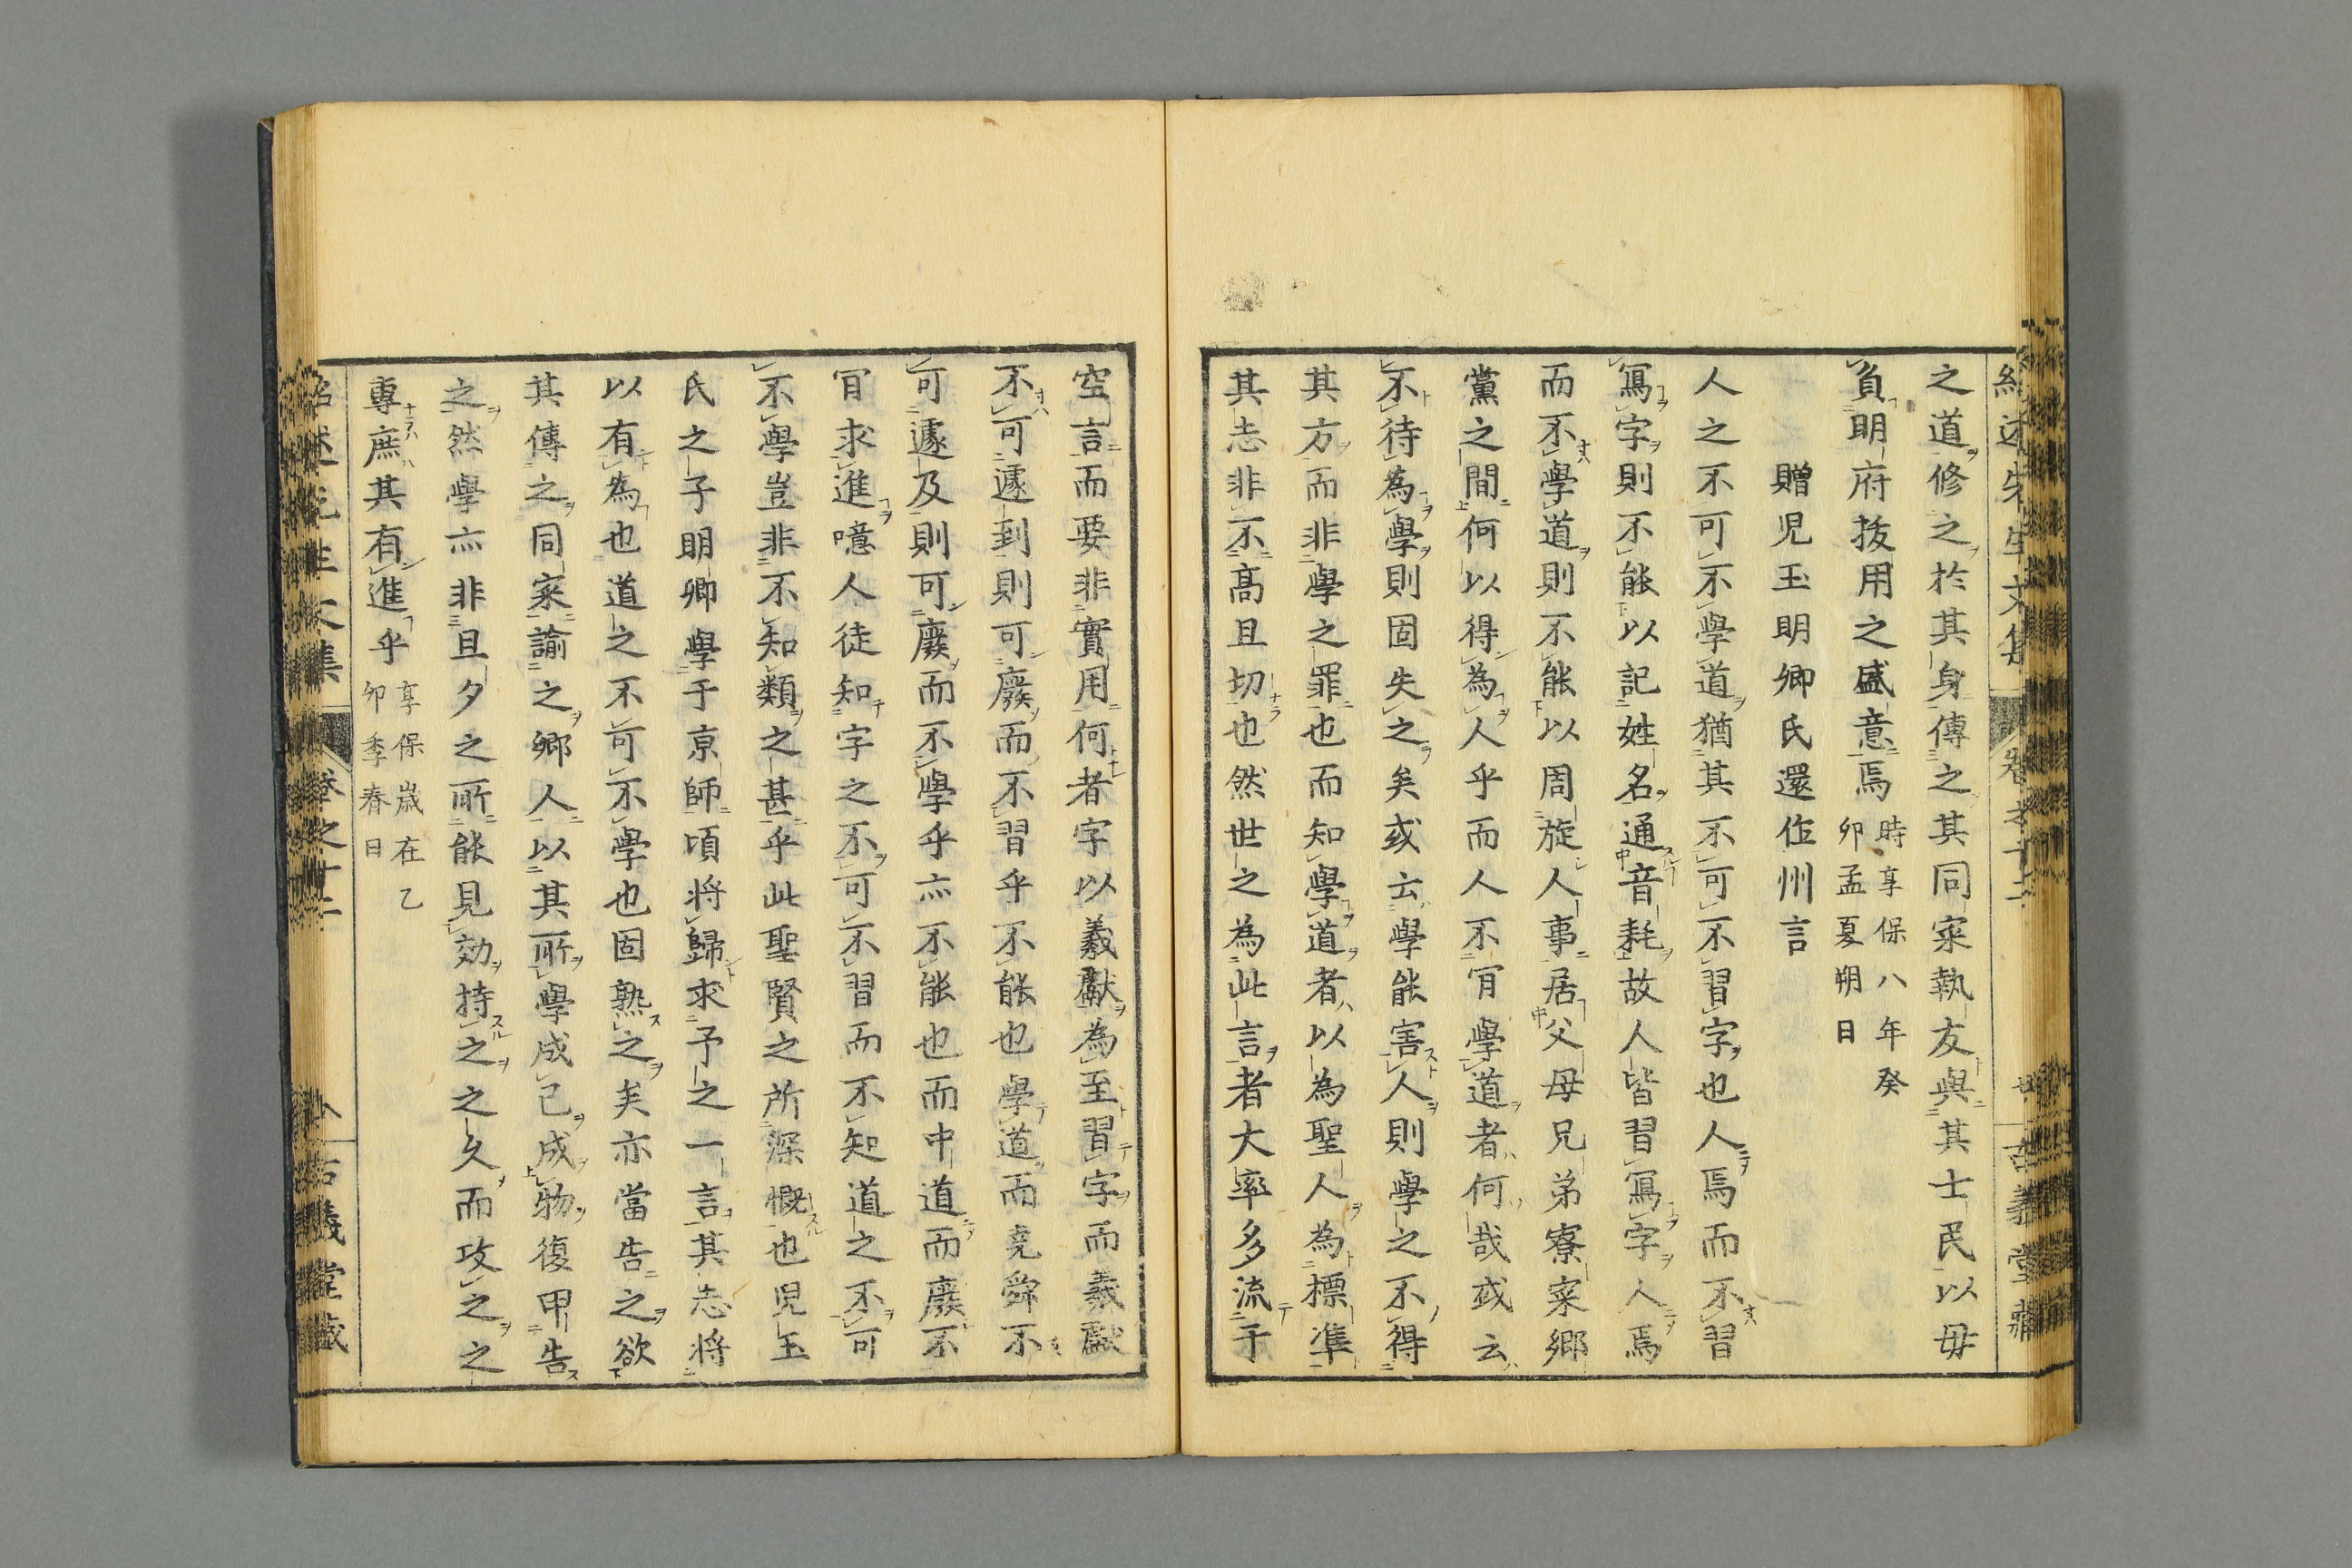 之道修之於其身傳之其同寀執友與其士民以毋
負明府拔用之盛意焉時享保八年癸
卯孟夏朔日
贈児玉明卿氏還作州言
人之不可不學道猶其不可不習字也人焉而不習
寫字則不能以記姓名通音耗故人皆習寫字人焉
而不學道則不能以周旋人事居父母兄弟寮寀鄉
黨之間何以得為人乎而人不肎學道者何哉或云
不待為學則固失之矣或云學能害人則學之不得
其方而非學之罪也而知學道者以為聖人為標準
其志非不高且切也然世之為此言者大率多流于
空言而要非實用何者字以羲獻為至習字而羲獻
不可遽到則可廢而不習乎不能也學道而堯舜不
可遽及則可廢而不學乎亦不能也而中道而廢不
肎求進噫人徒知字之不可不習而不知道之不可
不學豈非不知類之甚乎此聖賢之所深慨也児玉
氏之子明卿學于京師頃將歸求予之一言其志將
以有為也道之不可不學也固熟之矣亦當告之欲
其傳之同寀諭之鄉人以其所學成己成物復申告
之然學亦非旦夕之所能見効持之之久而攻之之
專庶其有進乎享保歲在乙
卯季春日
紹述先生文集 卷之十二 古義堂藏